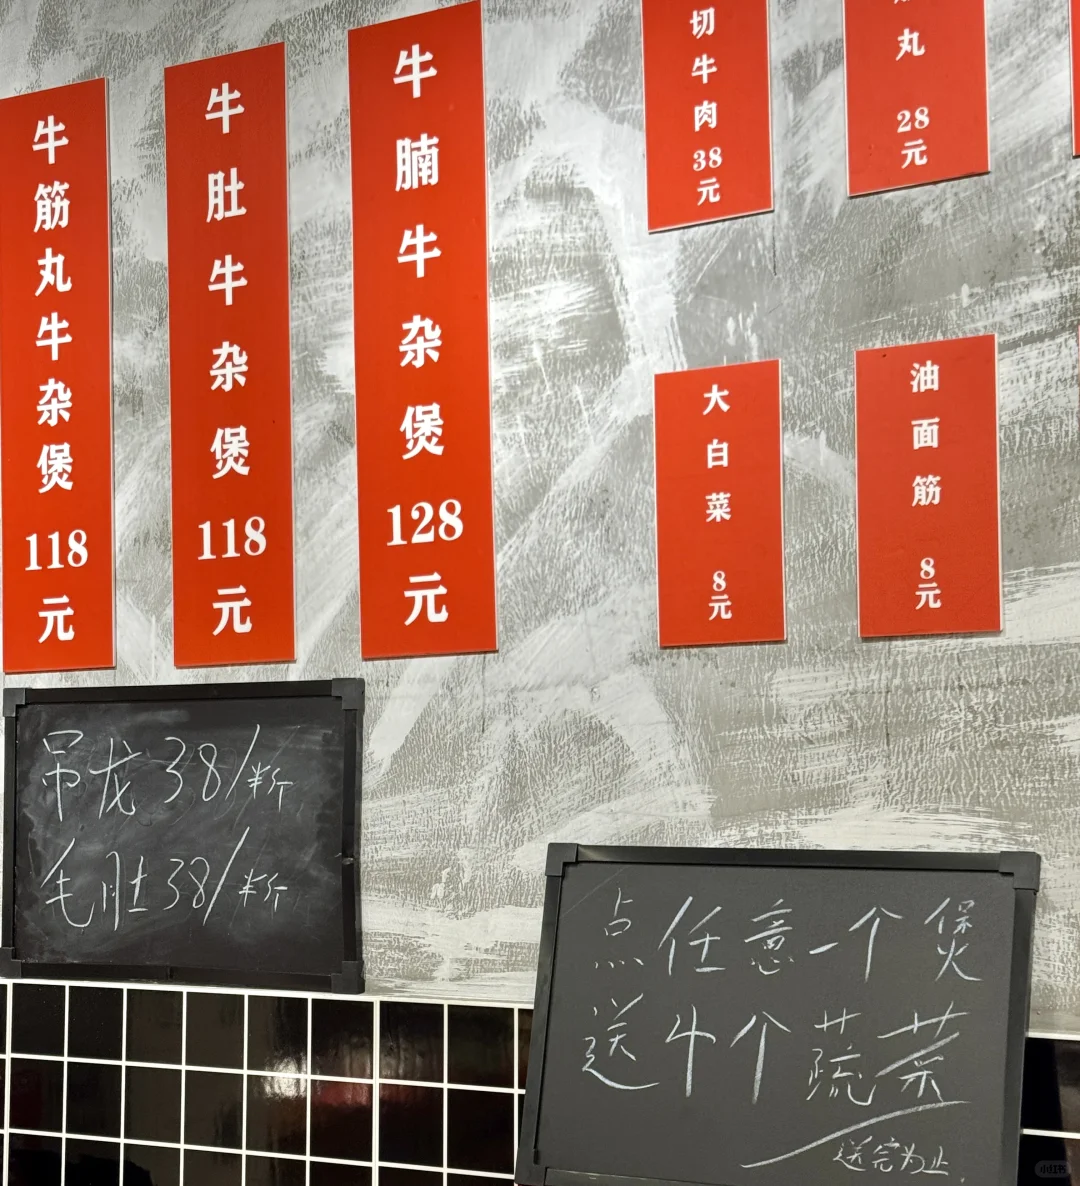 牛筋丸牛杂煲118元
牛肚牛杂煲118元
牛腩牛杂煲128元
切牛肉38元
丸28元
大白菜8元
油面筋8元
吊龙38/半斤
毛肚38/半斤
点任意一个煲
送4个蔬菜
送完为止
小红书